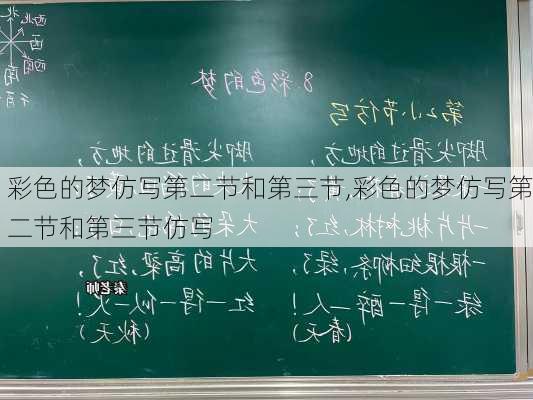 北
西北
西
西南
南
8.彩色的梦
第2小节仿写
脚尖滑过的地方,
一片片桃树林,红了;
一根根细柳条,绿了,
绿—得—醉—人!
(春天)
脚尖滑过的地方,
大朵
大片的高粱,红了,
红—得—似—火!
(秋天)
彩色的梦仿写第二节和第三节,彩色的梦仿写第
二节和第三节仿写
秦老师